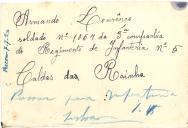 Armando Lourenço
soldado nº 1067 da 3ª companhia
do Regimento de Infantaria nº 5
Caldas da Rainha
Passou para
Lisboa